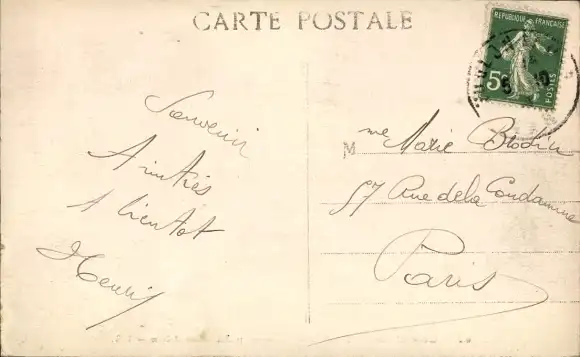 CARTE POSTALE
REPUBLIQUE FRANÇAISE
5c
POSTES
Souvenir
Amitiés
A bientot
Henri
M me Marie Brodin
57 Rue de la Condamine
Paris